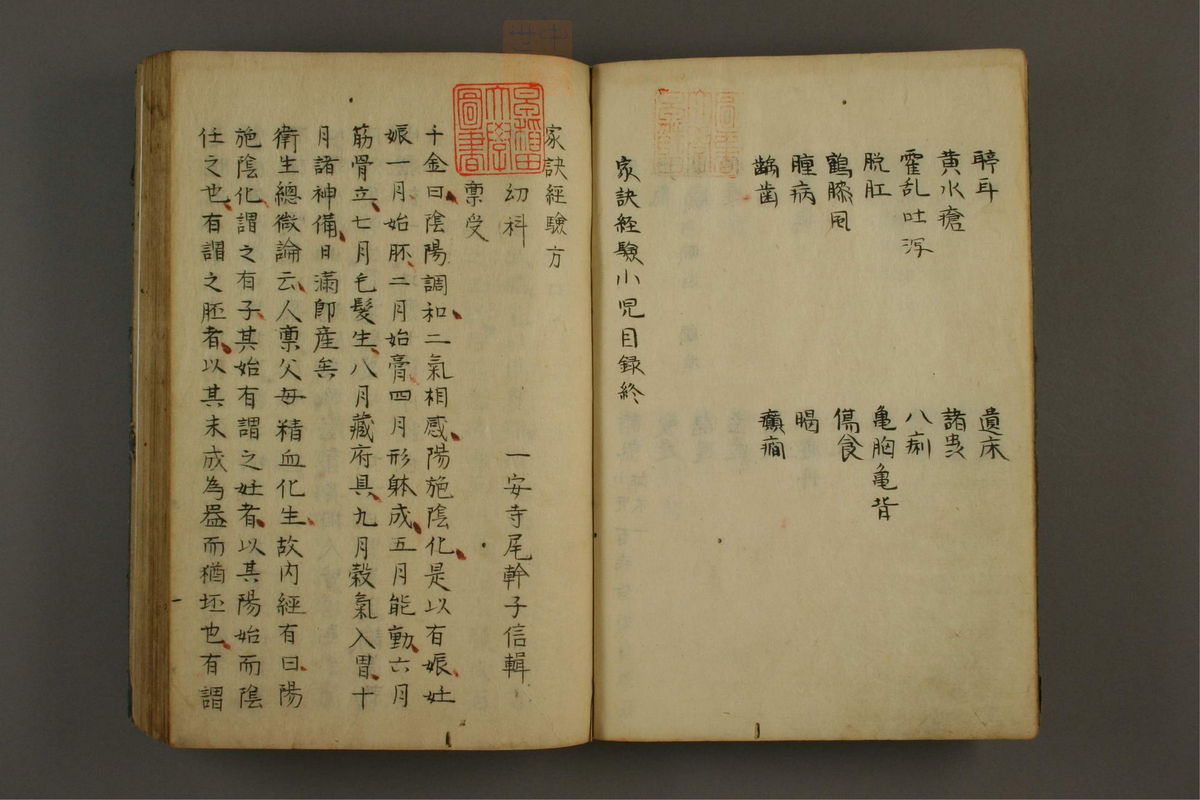 聤耳 遺床
黄水瘡 諸虫
霍乱吐泻 八痢
脱肛 亀胸亀背
鶴膝風 傷食
腫病 暍
齲歯 癲癇
家訣経驗小児目録終
家訣経驗方
幼科 一安寺尾幹子信輯
稟受
千金曰陰陽調和二氣相感陽施陰化是以有娠妊
娠一月始胚二月始膏四月形躰成五月能動六月
筋骨立七月毛髮生八月藏府具九月榖氣入胃十
月諸神備日滿即産矣
衛生總微論云人稟父母精血化生故内經有曰陽
施陰化謂之有子其始有謂之妊者以其陽始而陰
任之也有謂之胚者以其未成為器而猶坯也有謂